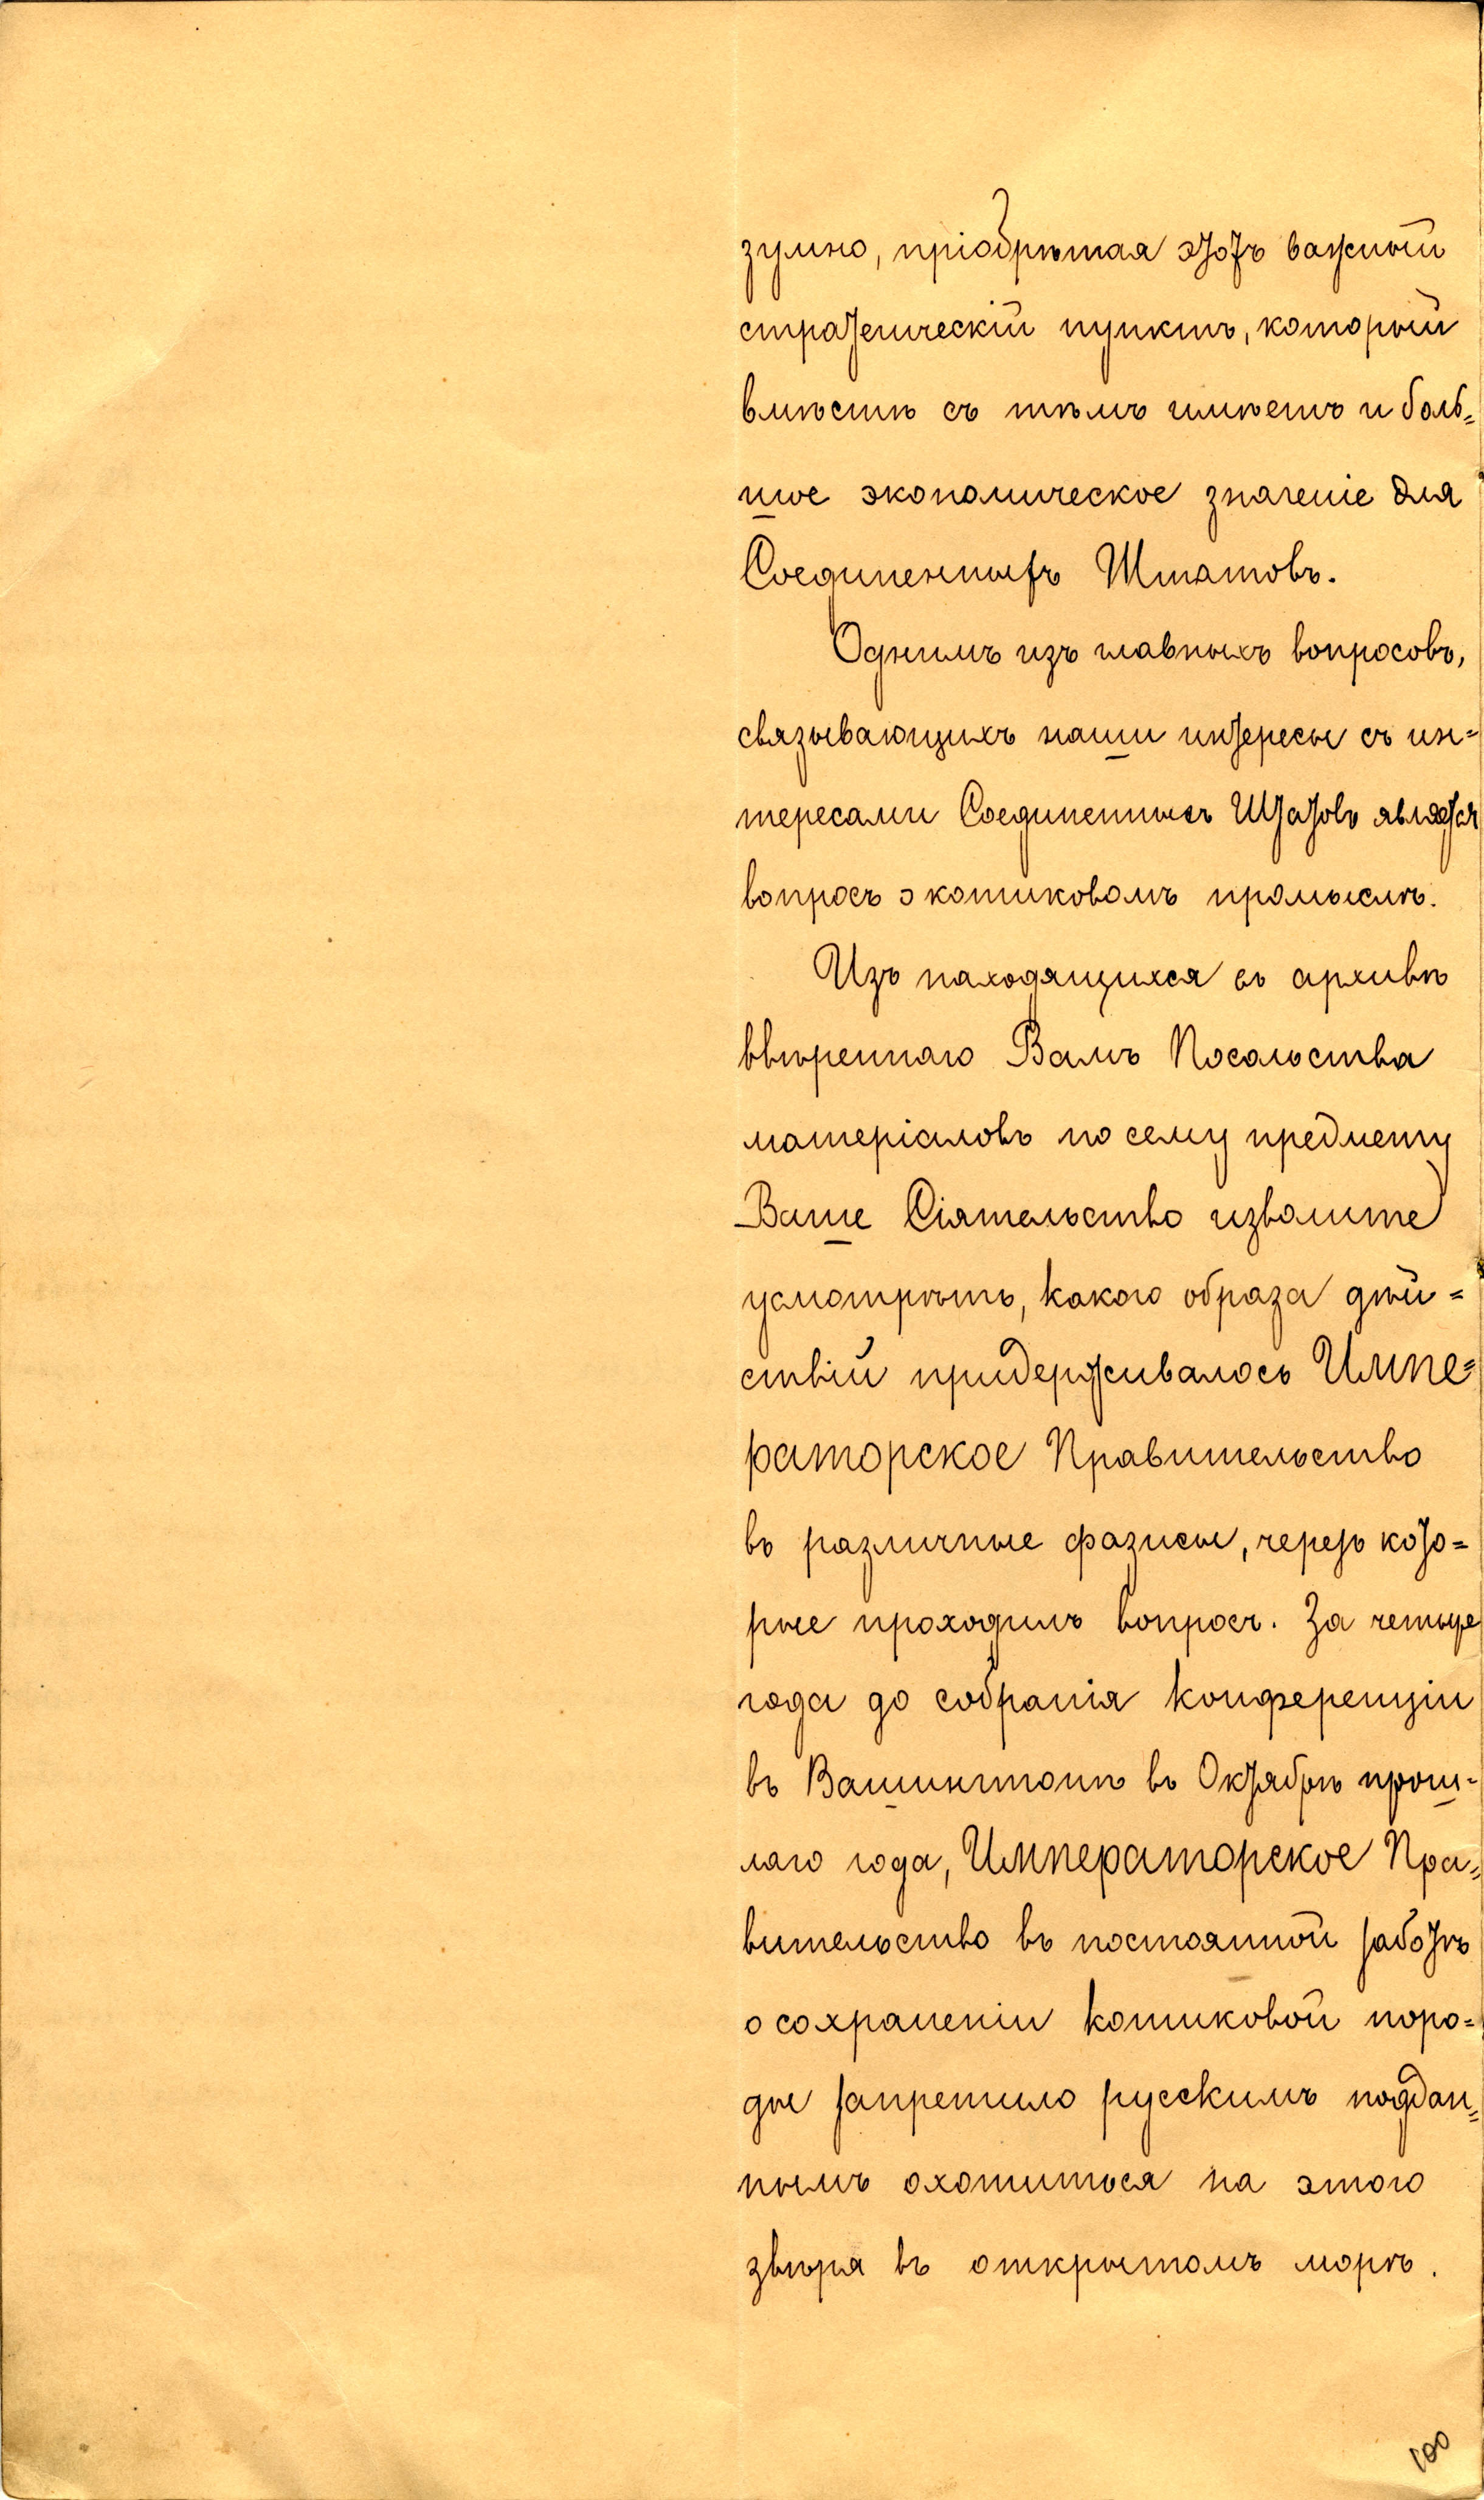 зумно, пріобрѣтая этотъ важный
стратегическій пунктъ, который
вмѣстѣ съ тѣмъ имѣетъ и боль=
шое экономическое значеніе для
Соединенныхъ Штатовъ.
Однимъ изъ главныхъ вопросовъ,
связывающихъ наши интересы съ ин=
тересами Соединенныхъ Штатовъ является
вопросъ о котиковомъ промыслѣ.
Изъ находящихся въ архивѣ
ввѣреннаго Вамъ Посольства
матеріаловъ по сему предмету
Ваше Сіятельство изволите
усмотрѣть, какого образа дѣй=
ствій придерживалось Импе=
раторское Правительство
въ различные фазисы, черезъ кото=
рые проходилъ вопросъ. За четыре
года до собранія конференціи
въ Вашингтонѣ въ Октябрѣ прош=
лаго года, Императорское Пра=
вительство въ постоянной заботѣ
о сохраненіи котиковой поро=
ды запретило русскимъ поддан=
нымъ охотиться на этого
звѣря въ открытомъ морѣ.
100